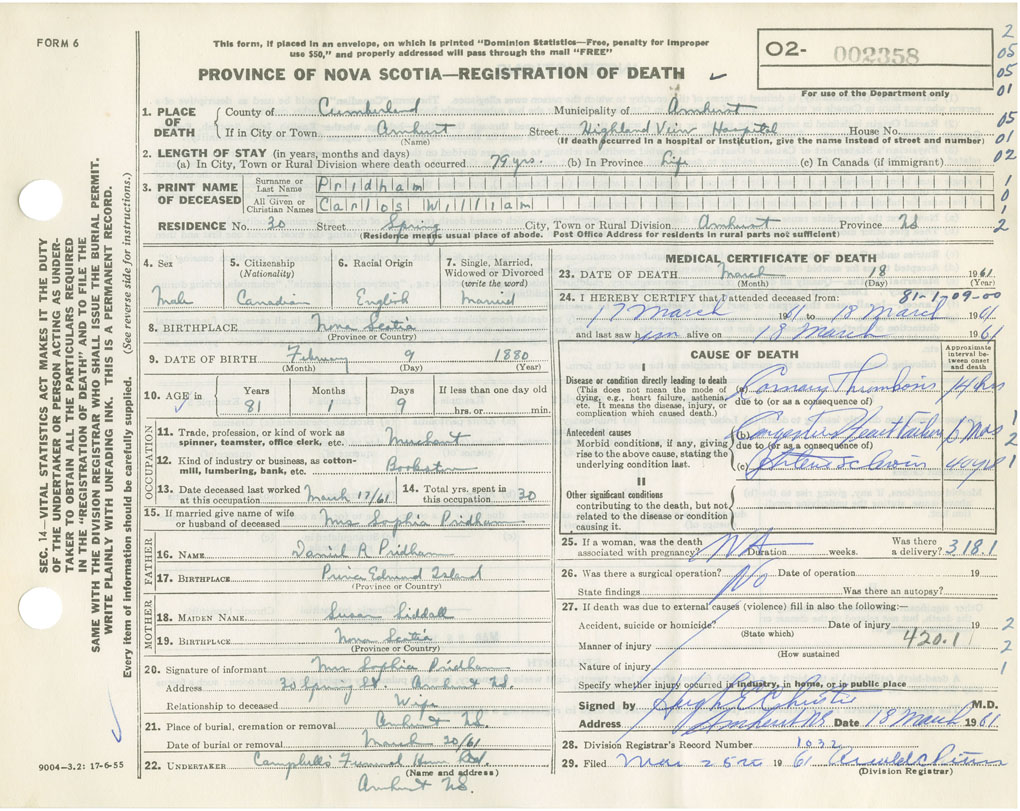 FORM 6
This form, if placed in an envelope, on which is printed "Dominion Statistics—Free, penalty for improper
use $50," and properly addressed will pass through the mail "FREE"
PROVINCE OF NOVA SCOTIA—REGISTRATION OF DEATH
O2- 002358
For use of the Department only
2
05
05
01
05
01
02
1
0
1
2
SEC. 14—VITAL STATISTICS ACT MAKES IT THE DUTY
OF THE UNDERTAKER OR PERSON ACTING AS UNDER-
TAKER TO OBTAIN ALL THE PARTICULARS REQUIRED
IN THE "REGISTRATION OF DEATH" AND TO FILE THE
SAME WITH THE DIVISION REGISTRAR WHO SHALL ISSUE THE BURIAL PERMIT.
WRITE PLAINLY WITH UNFADING INK. THIS IS A PERMANENT RECORD.
Every item of information should be carefully supplied. (See reverse side for instructions.)
1. PLACE OF DEATH County of Cumberland Municipality of Amherst
If in City or Town Amherst Street Highland View Hospital House No.
(Name) (If death occurred in a hospital or institution, give the name instead of street and number)
2. LENGTH OF STAY (in years, months and days)
(a) In City, Town or Rural Division where death occurred 79 yrs. (b) In Province Life (c) In Canada (if immigrant)
3. PRINT NAME OF DECEASED Surname or Last Name Pridham
All Given or Christian Names Carlos William
RESIDENCE No. 30 Street Spring City, Town or Rural Division Amherst Province NS
(Residence means usual place of abode. Post Office Address for residents in rural parts not sufficient)
4. Sex 5. Citizenship (Nationality) 6. Racial Origin 7. Single, Married, Widowed or Divorced (write the word)
Male Canadian English Married
8. BIRTHPLACE Nova Scotia
(Province or Country)
9. DATE OF BIRTH February 9 1880
(Month) (Day) (Year)
10. AGE in Years Months Days If less than one day old
81 1 9 hrs. or min.
OCCUPATION
11. Trade, profession, or kind of work as spinner, teamster, office clerk, etc. Merchant
12. Kind of industry or business, as cotton-mill, lumbering, bank, etc. Bookstore
13. Date deceased last worked at this occupation March 17/61 14. Total yrs. spent in this occupation 30
15. If married give name of wife or husband of deceased Mrs Sophia Pridham
FATHER
16. NAME Daniel R Pridham
17. BIRTHPLACE Prince Edward Island
(Province or Country)
MOTHER
18. MAIDEN NAME Susan Siddall
19. BIRTHPLACE Nova Scotia
(Province or Country)
20. Signature of informant Mrs Sophia Pridham
Address 30 Spring St. Amherst NS.
Relationship to deceased Wife
21. Place of burial, cremation or removal Amherst NS
Date of burial or removal March 20/61
22. UNDERTAKER Campbells Funeral Home Ltd.
(Name and address)
Amherst NS.
9004—3.2: 17-6-55
MEDICAL CERTIFICATE OF DEATH
23. DATE OF DEATH March 18 1961
(Month) (Day) (Year)
24. I HEREBY CERTIFY that I attended deceased from: 81-1-09-00
17 March 1961 to 18 March 1961
and last saw him alive on 18 March 1961
CAUSE OF DEATH Approximate interval between onset and death
I
Disease or condition directly leading to death
(This does not mean the mode of dying, e.g., heart failure, asthenia, etc. It means the disease, injury, or complication which caused death.)
(a) Coronary Thrombosis 14 hrs
due to (or as a consequence of)
Antecedent causes
Morbid conditions, if any, giving rise to the above cause, stating the underlying condition last.
(b) Congestive Heart Failure 6 mos
due to (or as a consequence of)
(c)
1
2
1
II
Other significant conditions
contributing to the death, but not related to the disease or condition causing it.
25. If a woman, was the death associated with pregnancy? NA Duration weeks. Was there a delivery? 318.1
26. Was there a surgical operation? No Date of operation 19
State findings Was there an autopsy?
27. If death was due to external causes (violence) fill in also the following:—
Accident, suicide or homicide? Date of injury 19 2
(State which) 420.1
Manner of injury 2
(How sustained)
Nature of injury 1
Specify whether injury occurred in industry, in home, or in public place
Signed by Hugh E Christie M.D.
Address Amherst NS Date 18 March 1961
28. Division Registrar's Record Number 1032
29. Filed Mar 25 1961
(Division Registrar)